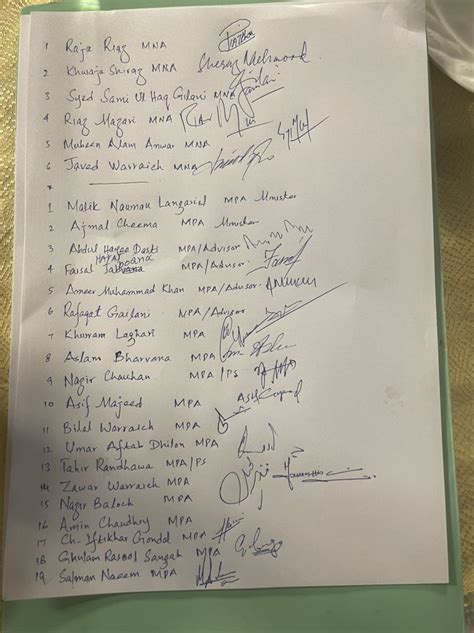 1 Raja Riaz MNA
2 Khwaja Shiraz MNA Sheraz Mehmood
3 Syed Sami Ul Haq Gilani MNA
4 Riaz Mazari MNA
5 Mubeen Alam Anwar MNA
6 Javed Warraich MNA
1 Malik Nauman Langarial MPA Minister
2 Ajmal Cheema MPA Minister
3 Abdul Hayee Dasti MPA/Advisor
4 Faisal Hayat MPA/Advisor
5 Ameer Muhammad Khan MPA/Advisor
6 Rafaqat Gailani MPA/Advisor
7 Khurram Laghari MPA
8 Aslam Bharvana MPA
9 Nazir Chauhan MPA/PS
10 Asif Majeed MPA
11 Bilal Warraich MPA
12 Umar Aftab Dhilon MPA
13 Tahir Randhawa MPA/PS
14 Zawar Warraich MPA
15 Nazir Baloch MPA
16 Amin Chaudhry MPA
17 Ch. Iftikhar Gondal MPA
18 Ghulam Rasool Sangah MPA
19 Salman Naeem MPA